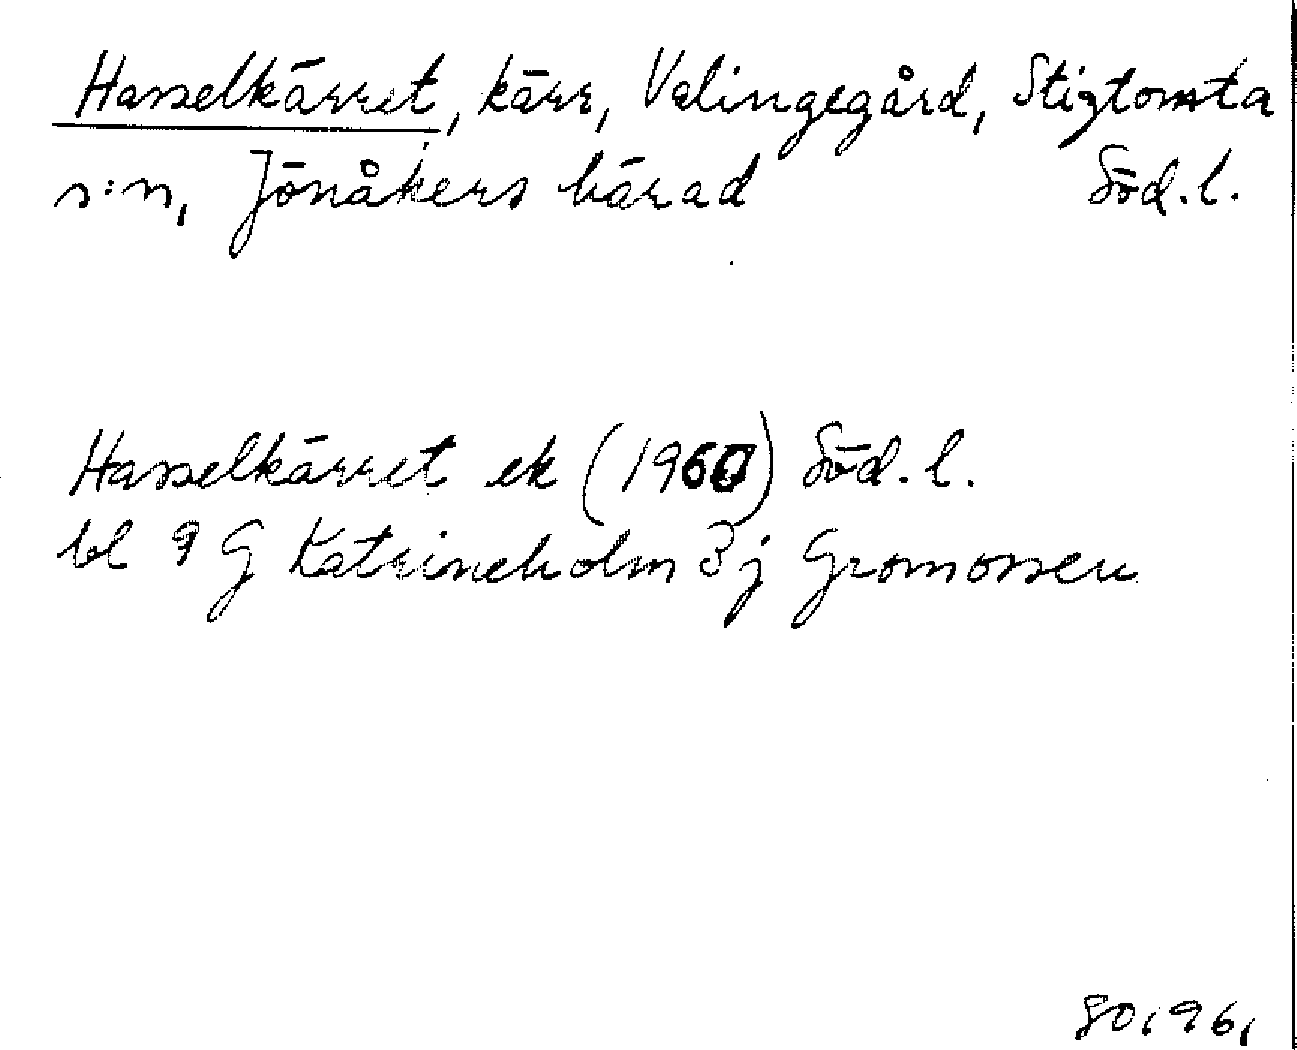 Hasselkärret, kärr, Valingegård, Stigtomta
s:n, Jönåkers härad Söd. l.
Hasselkärret ek (1960) Söd. l.
bl 9 G Katrineholm 3 j Gromossen
80,96,